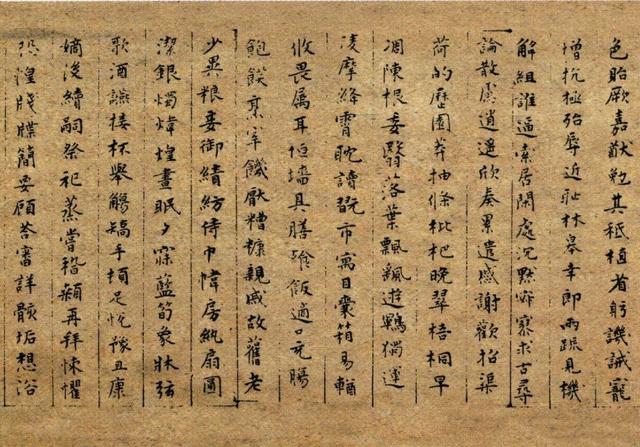 色貽厥嘉猷勉其祗植省躬譏誡寵
增抗極殆辱近耻林皋幸即兩疏見機
解組誰逼索居閑處沉默寂寥求古尋
論散慮逍遙欣奏累遣慼謝歡招渠
荷的歷園莽抽條枇杷晚翠梧桐早
凋陳根委翳落葉飄飖遊鵾獨運
淩摩絳霄耽讀翫市寓目囊箱易輶
攸畏属耳垣墻具膳飡飯適口充腸
飽飫烹宰饑厭糟糠親戚故舊老
少異粮妾御績紡侍巾帷房紈扇圓
潔銀燭煒煌晝眠夕寐藍筍象牀弦
歌酒讌接杯舉觴矯手頓足悅豫且康
嫡後續嗣祭祀蒸嘗稽顙再拜悚懼
恐惶牋牒簡要顧答審詳骸垢想浴